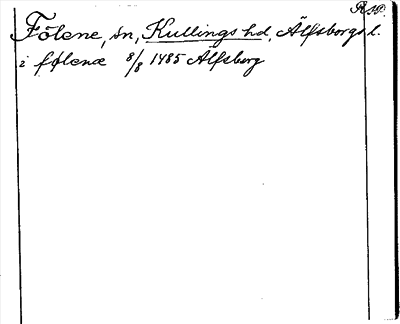 Fölene, sn, Kullings hd, Älfsborgs l.
i følenæ 8/8 1485 Älfsborg